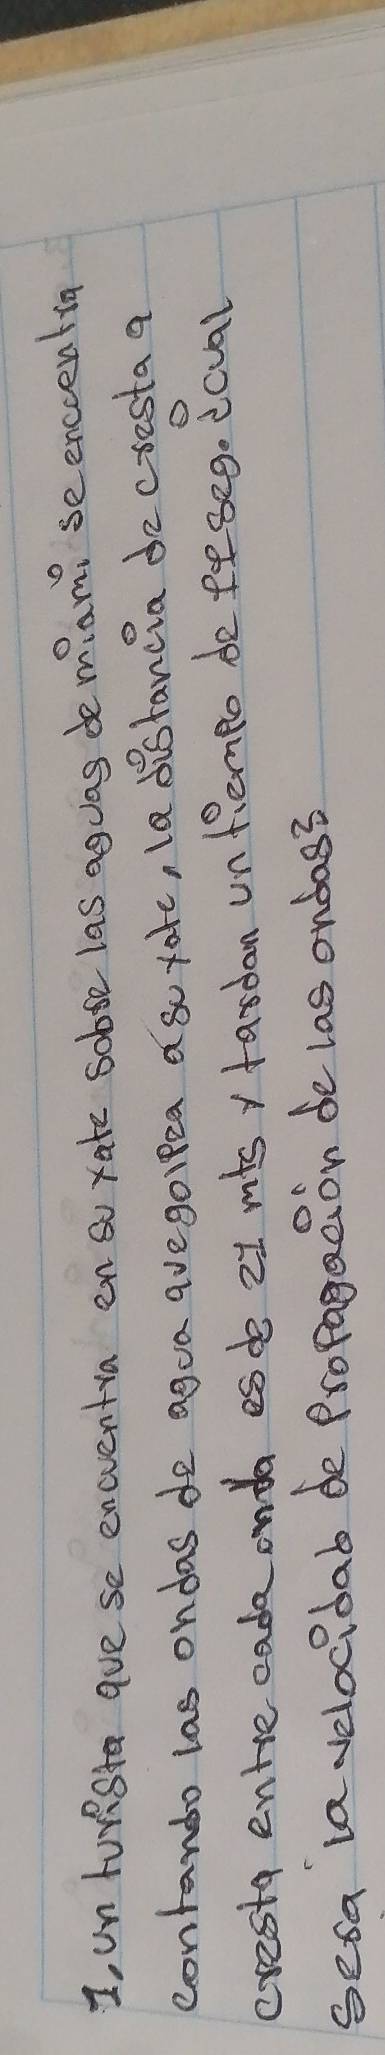 1, un turista que se encuentra en su yate sobre las aguas de miami, se encuentra
contando las ondas de agua que golpea a su yate, la distancia de cresta a
cresta entre cada onda es de 21 mts y tardan un tiempo de seg. ¿cual
sera la velocidad de propagación de las ondas?